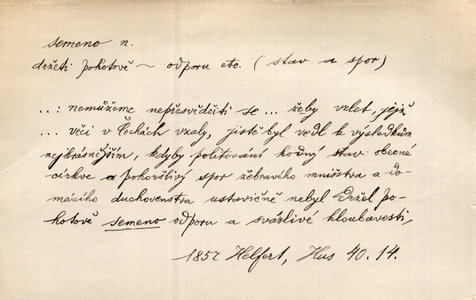 semeno n.
držeti pohotově ~ odporu etc. (stav a spor)
...: nemůžeme nepřesvědčiti se ... žeby vzlet, jejž
... věci v Čechách vzaly, jistě byl vedl k výsledkům
nejkrásnějším, kdyby politování hodný stav obecné
církve a pohoršlivý spor žebravého mništva a do-
mácího duchovenstva ustavičně nebyl držel po-
hotově semeno odporu a svárlivé hloubavosti,
1857 Helfert, Hus 40. 14.